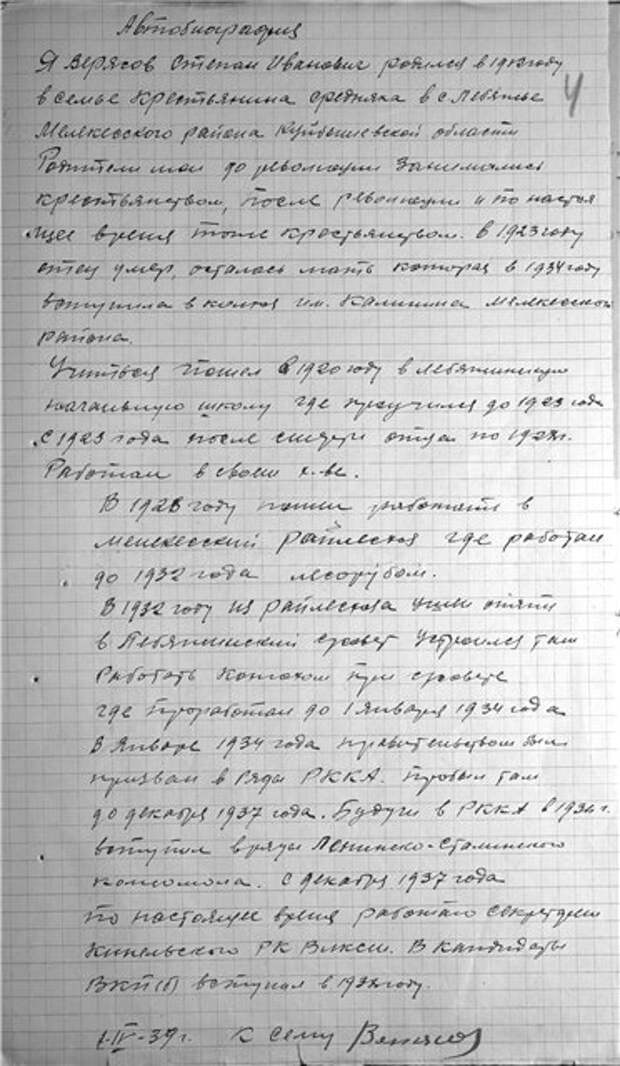 Автобиография
Я Верясов Степан Иванович родился в году
в семье крестьянина середняка в с Лебяжье
Мелекесского района Куйбышевской области
4
Родители мои до революции занимались
крестьянством, после революции и по настоя
щее время тоже крестьянством. В 1923 году
отец умер, осталась мать которая в 1934 году
вступила в колхоз им. Калинина Мелекесского
района.
Учиться пошел в 1920 году в Лебяжинскую
начальную школу где проучился до 1923 года
С 1923 года после смерти отца по
Работал в своем х-ве.
В 1928 году пошел работать в
Мелекесский райлесхоз где работал
до 1932 года лесорубом.
В 1932 году из райлесхоза ушел опять
в Лебяжинский с/совет устроился там
Работать при с/совете
где проработал до 1 января 1934 года
В январе 1934 года правительством был
призван в ряды РККА. Пробыл там
до декабря 1937 года. Будучи в РККА в г.
вступил в ряды Ленинско-Сталинского
комсомола. С декабря 1937 года
по настоящее время работаю секретарем
Кинельского РК ВЛКСМ. В кандидаты
ВКП(б) вступил в году.
1-IV-39г. К сему Верясов